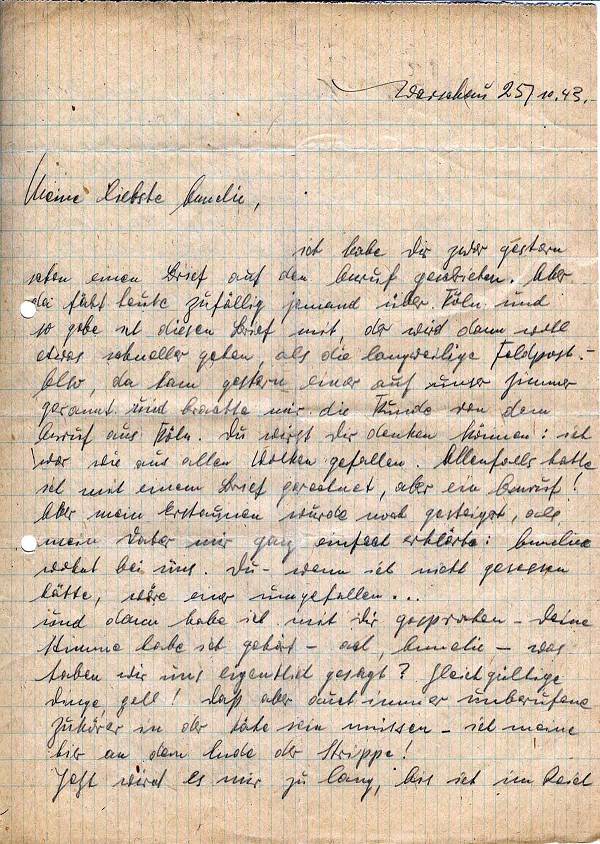 Warschau 25/10.43.-
Meine Liebste Annelie,
ich habe Dir zwar gestern
schon einen Brief auf den Anruf geschrieben. Aber
da fährt heute zufällig jemand über Köln und
so gebe ich diesen Brief mit der wird dann wohl
etwas schneller gehen, als die langweilige Feldpost.-
Also, da kam gestern einer auf unser Zimmer
gerannt und brachte mir die Kunde von dem
Anruf aus Köln. Du wirst Dir denken können: ich
war wie aus allen Wolken gefallen. Allenfalls hatte
ich mit einem Brief gerechnet, aber ein Anruf!
Aber mein Erstaunen wurde noch gesteigert, als
mein Vater mir ganz einfach erklärte: Annelie
wohnt bei uns. Du - wenn ich nicht gesessen
hätte, wäre einer umgefallen...
und dann habe ich mit Dir gesprochen - Deine
Stimme habe ich gehört - ach, Annelie - was
haben wir uns eigentlich gesagt? Gleichgültige
Dinge, gell! Daß aber auch immer unberufene
Zuhörer in der Nähe sein müssen - ich meine
hier an dem Ende der Strippe!
Jetzt wird es mir zu lang, bis ich im Reich